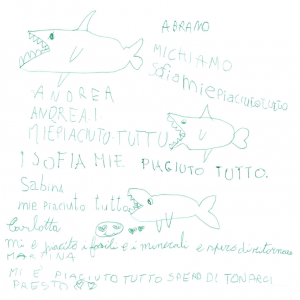 ABRAMO
MI CHIAMO
Sofia mie piaciuto tutto
ANDREA
ANDREA I.
MIE PIACIUTO TUTTU
I SOFIA MIE PIACIUTO TUTTO.
Sabina
mie piaciuto tutto
Carlotta
mi è piaciuto i fossili e i minerali e spero di ritornare
MARTINA
MI È PIACIUTO TUTTO SPERO DI TONARCI
PRESTO